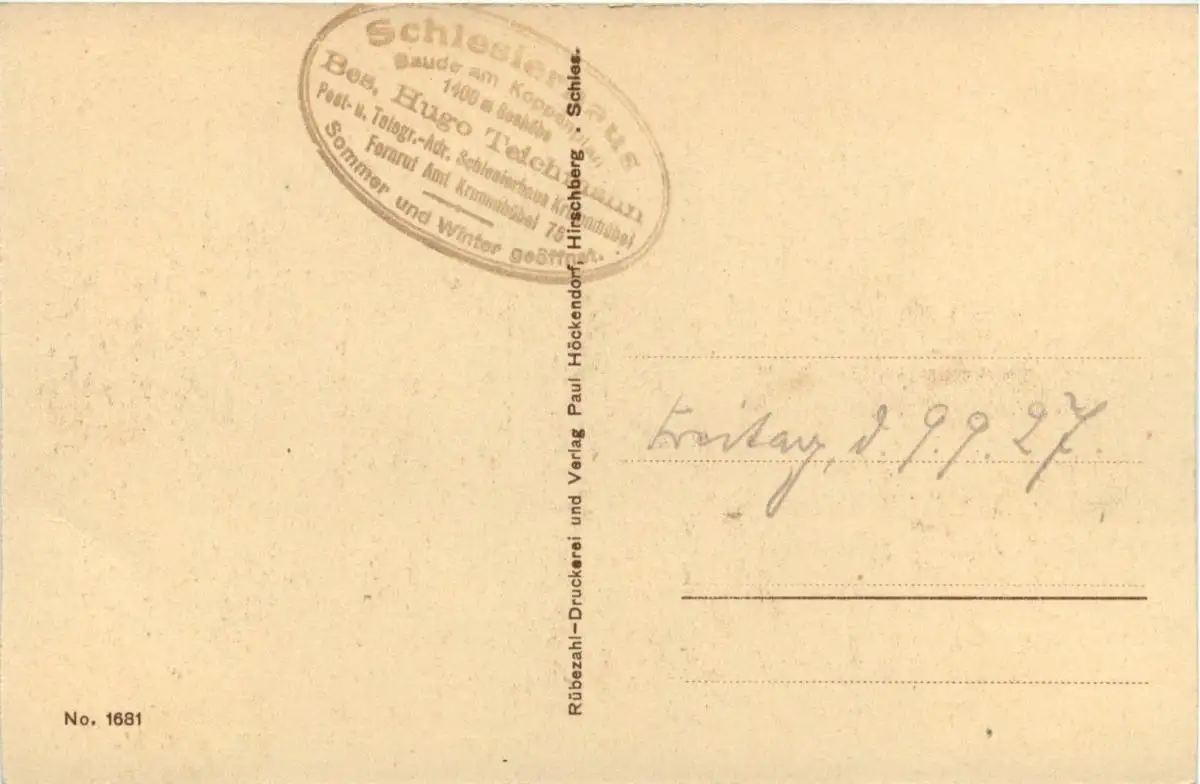 Schlesierhaus
Baude am Koppenplan
1400 m Seehöhe
Bes. Hugo Teichmann
Post- u. Telegr.-Adr. Schlesierhaus Krummhübel
Fernruf Amt Krummhübel 75
Sommer und Winter geöffnet.
Rübezahl-Druckerei und Verlag Paul Höckendorf, Hirschberg . Schles.
Freitag, d. 9.9.27.
No. 1681